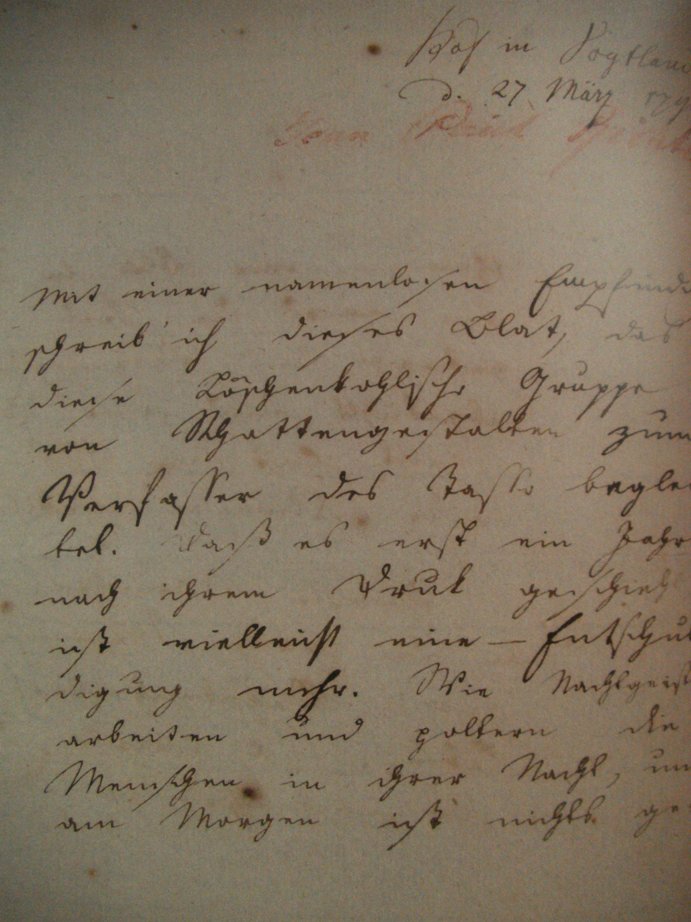 Hof in Vogtlan
d. 27 März 179
Mit einer namenlosen Empfindu
schreib' ich dieses Blat, das
diese Löschenkohlische Gruppe
von Schattengestalten zum
Verfasser des Tasso beglei
tet. Daß es erst ein Jahr
nach ihrem Druk geschieht
ist vielleicht eine – Entschul
digung mehr. Wie Nachtgeist
arbeiten und poltern die
Menschen in ihrer Nacht, un
am Morgen ist nichts ge